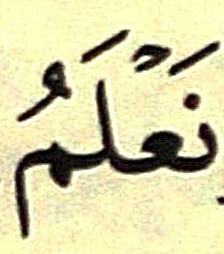 نَعْلَمُ